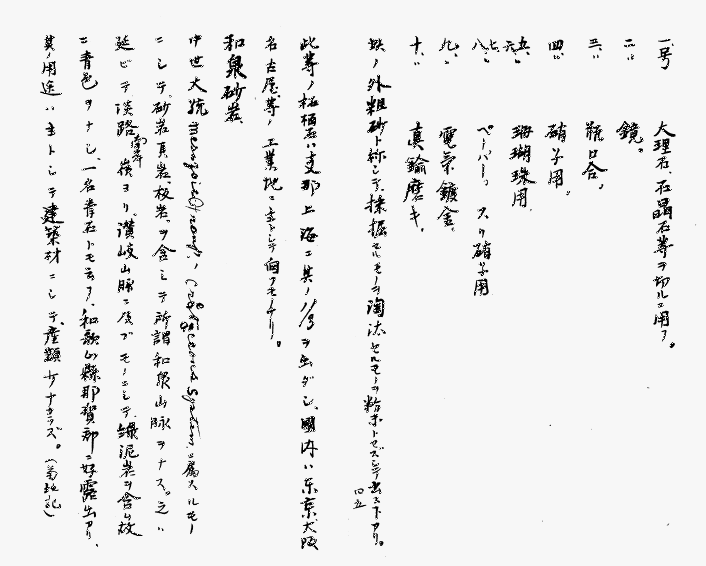 一号 大理石、石晶石等ヲ切ルニ用フ。
二〃 鏡。
三〃 瓶口合。
四〃 硝子用。
五〃 珊瑚珠用
六〃
七〃 八〃 ペーパー、スリ硝子用
九〃 電気鍍金。
十〃 真鍮磨キ。
此ノ外粗砂ト称シテ、採掘セルモノヲ淘汰セルモノヲ粉末トセズシテ出スコトアリ。
四五
此等ノ柘榴石ハ支那上海ニ其ノ1/3ヲ出ダシ、国内ハ东京大阪
名古屋等ノ工業地ニ主トシテ向フモノナリ。
和泉砂岩
中世大統 mesozoic group ノ Cretaceous System ニ属スルモノ
ニシテ、砂岩頁岩、板岩ヲ含ミテ所謂和泉山脉ヲナス。之ハ
延ビテ淡路南岸ヨリ、讃岐山脉ニ及ブモノニシテ、緑泥岩ヲ含ム故
ニ青色ヲナシ、一名青石トモ云フ、和歌山縣那賀郡ニ好露出アリ、
其ノ用途ハ主トシテ建築材ニシテ、産額少ナカラズ。（菊池記）